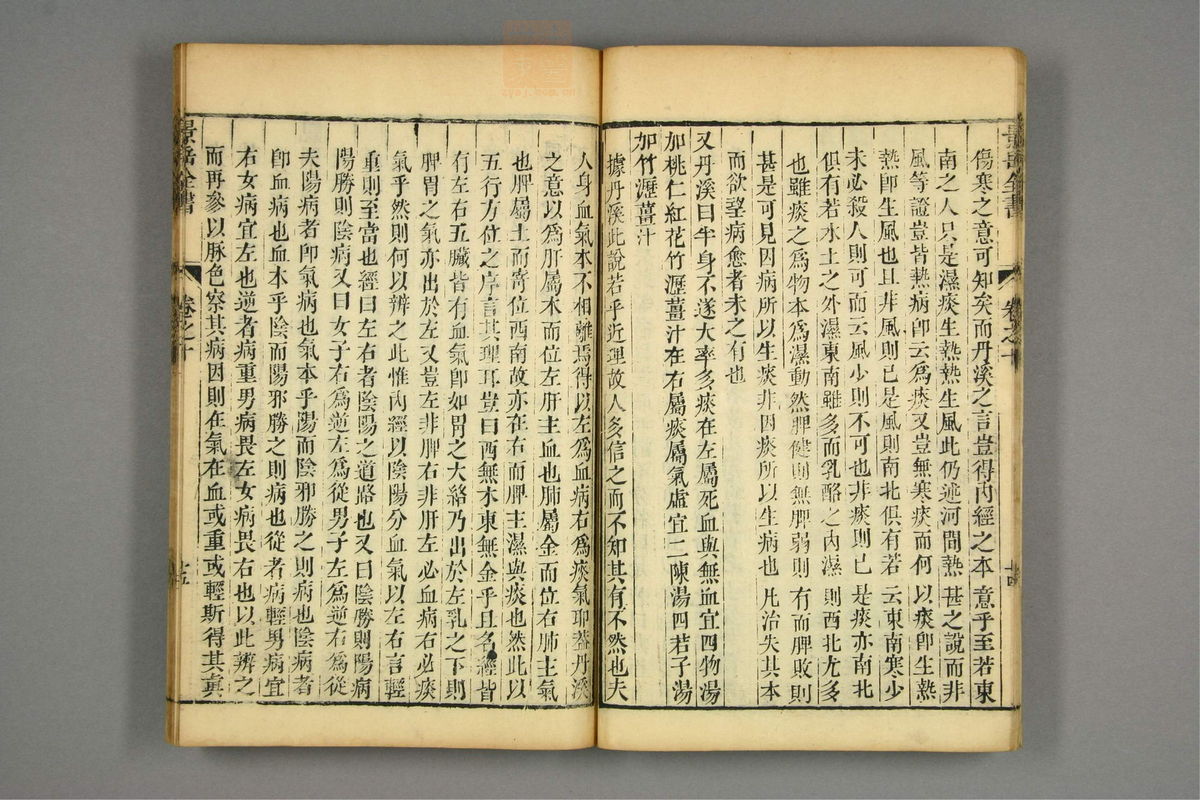 傷寒之意可知矣而丹溪之言豈得內經之本意乎至若東
南之人只是濕痰生熱熱生風此仍述河間熱甚之說而非
風等證豈皆熱病卽云爲痰又豈無寒痰而何以痰卽生熱
熱卽生風也且非風則已是風則南北俱有若云東南寒少
未必殺人則可而云風少則不可也非痰則已是痰亦南北
俱有若水土之外濕東南雖多而乳酪之內濕則西北尤多
也雖痰之爲物本爲濕動然脾健則無脾弱則有而脾敗則
甚是可見因病所以生痰非因痰所以生病也凡治失其本
而欲望病愈者未之有也
又丹溪曰半身不遂大率多痰在左屬死血與無血宜四物湯
加桃仁紅花竹瀝薑汁在右屬痰屬氣虛宜二陳湯四君子湯
加竹瀝薑汁
據丹溪此說若乎近理故人多信之而不知其有不然也夫
人身血氣本不相離焉得以左爲血病右爲痰氣耶蓋丹溪
之意以爲肝屬木而位左肝主血也肺屬金而位右肺主氣
也脾屬土而寄位西南故亦在右而脾主濕與痰也然此以
五行方位之序言其理耳豈曰西無木東無金乎且各經皆
有左右五臟皆有血氣卽如胃之大絡乃出於左乳之下則
脾胃之氣亦出於左又豈左非脾右非肝左必血病右必痰
氣乎然則何以辨之此惟內經以陰陽分血氣以左右言輕
重則至當也經曰左右者陰陽之道路也又曰陰勝則陽病
陽勝則陰病又曰女子右爲逆左爲從男子左爲逆右爲從
夫陽病者卽氣病也氣本乎陽而陰邪勝之則病也陰病者
卽血病也血本乎陰而陽邪勝之則病也從者病輕男病宜
右女病宜左也逆者病重男病畏左女病畏右也以此辨之
而再參以脉色察其病因則在氣在血或重或輕斯得其眞
景岳全書
卷之十
十四
景岳全書
卷之十
十五